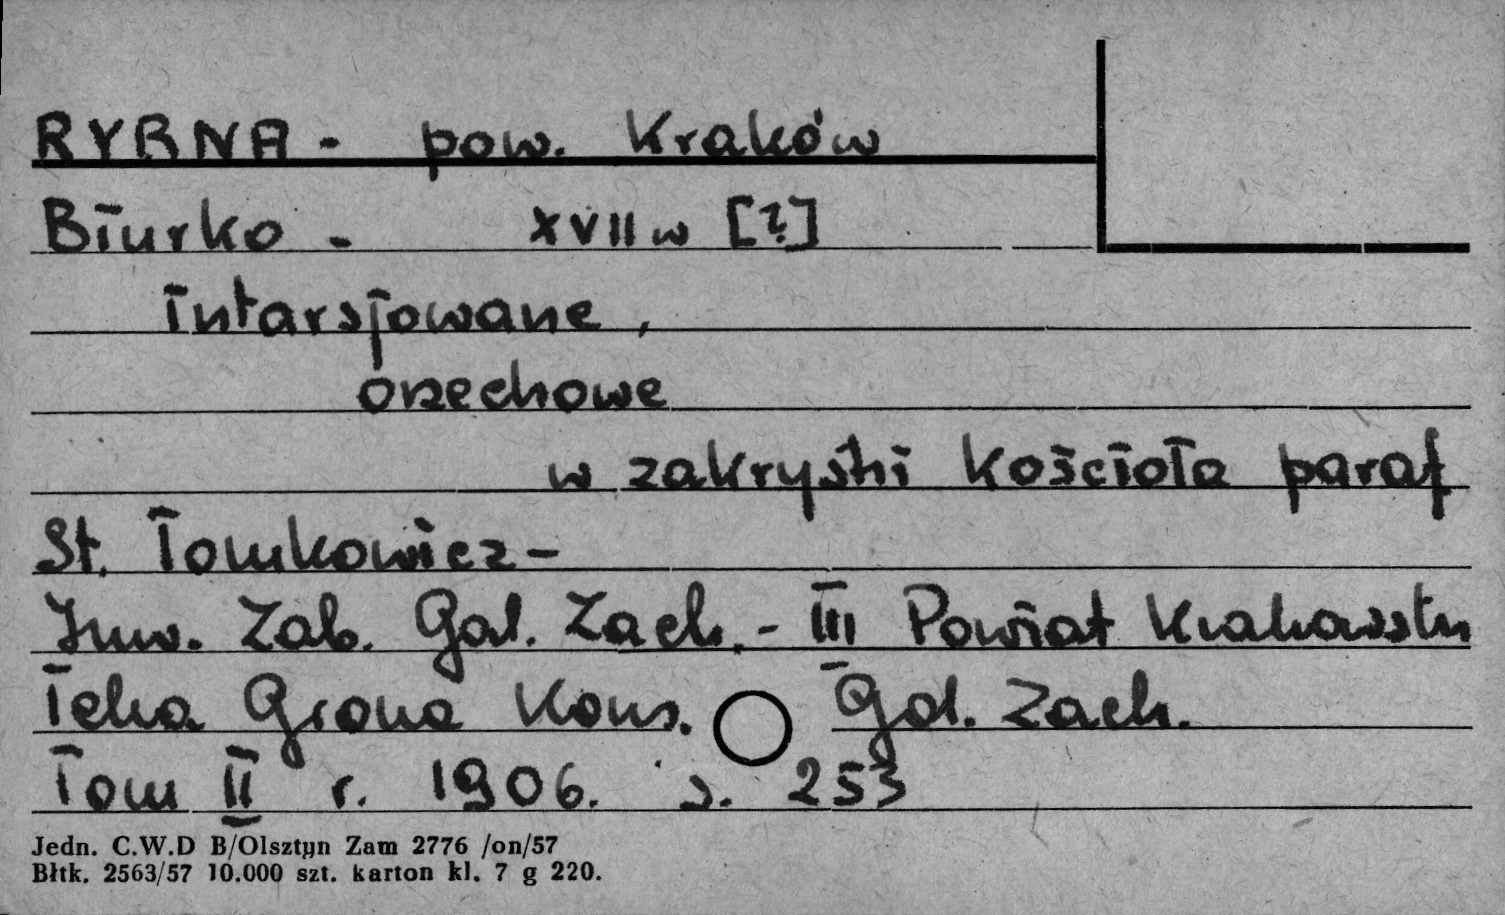 RYBNA - pow. Kraków
Biurko - XVII w [?]
intarsjowane,
orzechowe
w zakrystii kościoła paraf
St. Tomkowicz -
Inw. Zab. Gal. Zach. - III Powiat Krakowski
Teka Grona Kons. Gal. Zach.
Tom II r. 1906. s. 253
Jedn. C.W.D B/Olsztyn Zam 2776 /on/57
Błtk. 2563/57 10.000 szt. karton kl. 7 g 220.